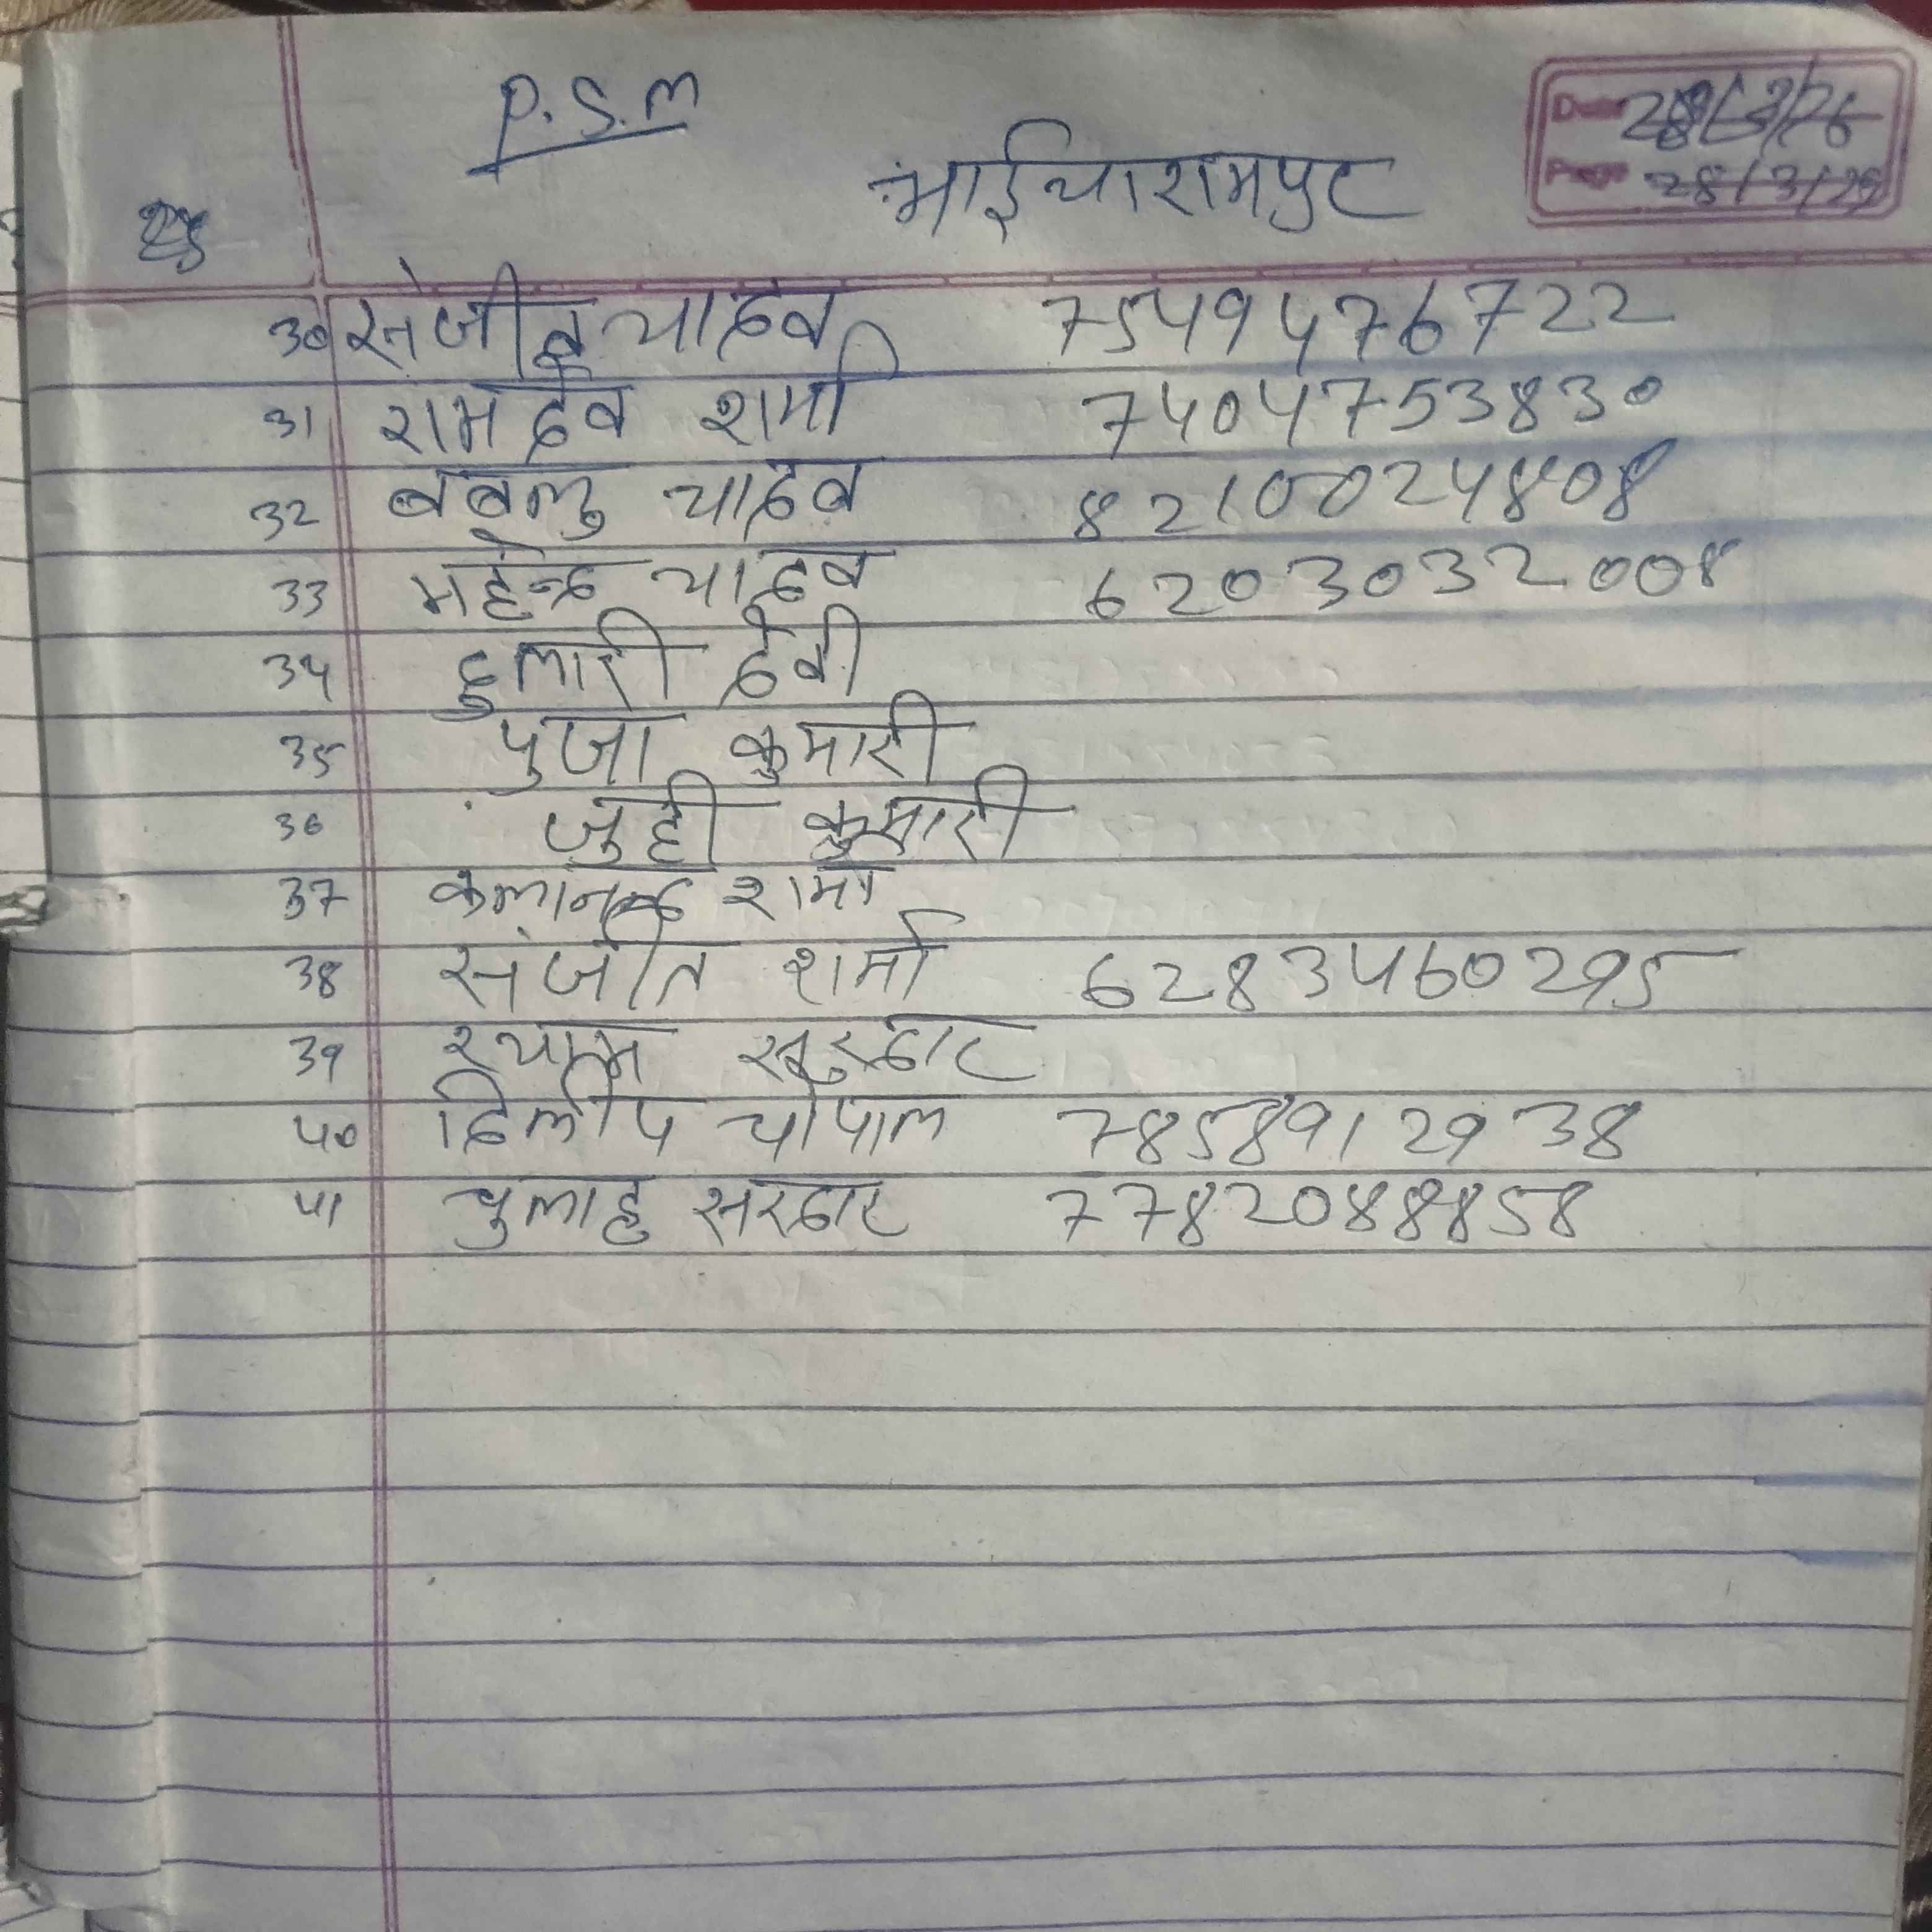 P.S.M
Date 28/3/26
भाईचारामपुर
Page 28/3/29
30 संजीत यादव 7549476722
31 रामदेव शर्मा 7404753830
32 बबलु यादव 8210024808
33 महेन्द्र यादव 6203032008
34 दुलारी देवी
35 पुजा कुमारी
36 जुही कुमारी
37 कलानन्द शर्मा
38 संजीत शर्मा 6283460295
39 श्याम सरदार
40 दिलीप चौपाल 7858912938
41 चुलाह सरदार 7782088858